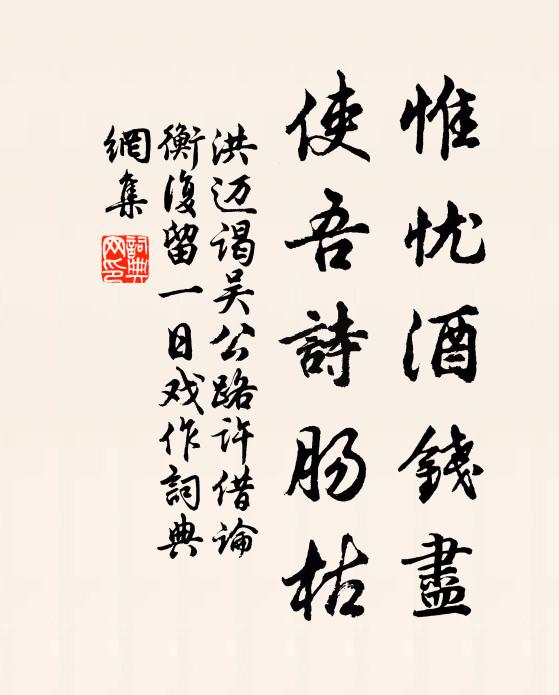 惟忧酒錢盡
使吾詩肠枯
洪迈谒吴公路许借論
衡復留一日戏作詞典
網集
詞典
网印